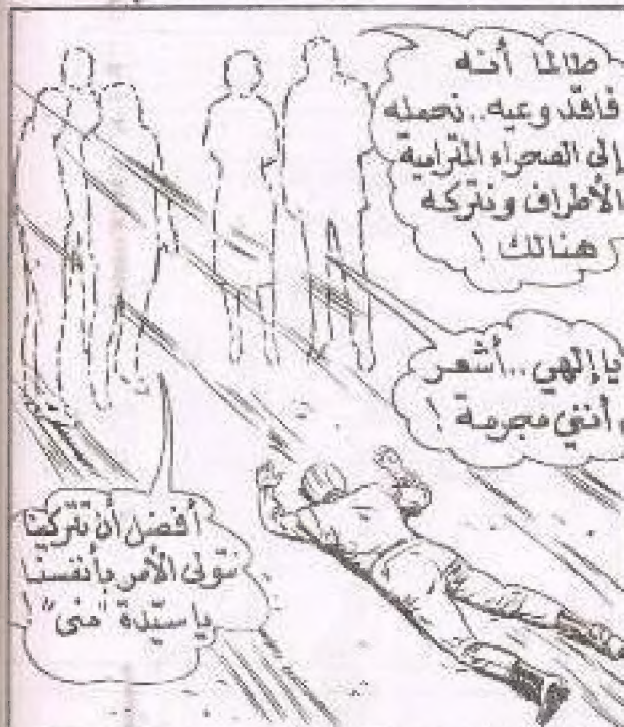 طالما أنه
فاقد وعيه..نحمله
إلى الصحراء المترامية
الأطراف ونتركه
هنالك !
يا إلهي..أشعر
أنني مجرمة !
أفضل أن تتركينا
نتولى الأمر بأنفسنا
يا سيّدة "منى" !